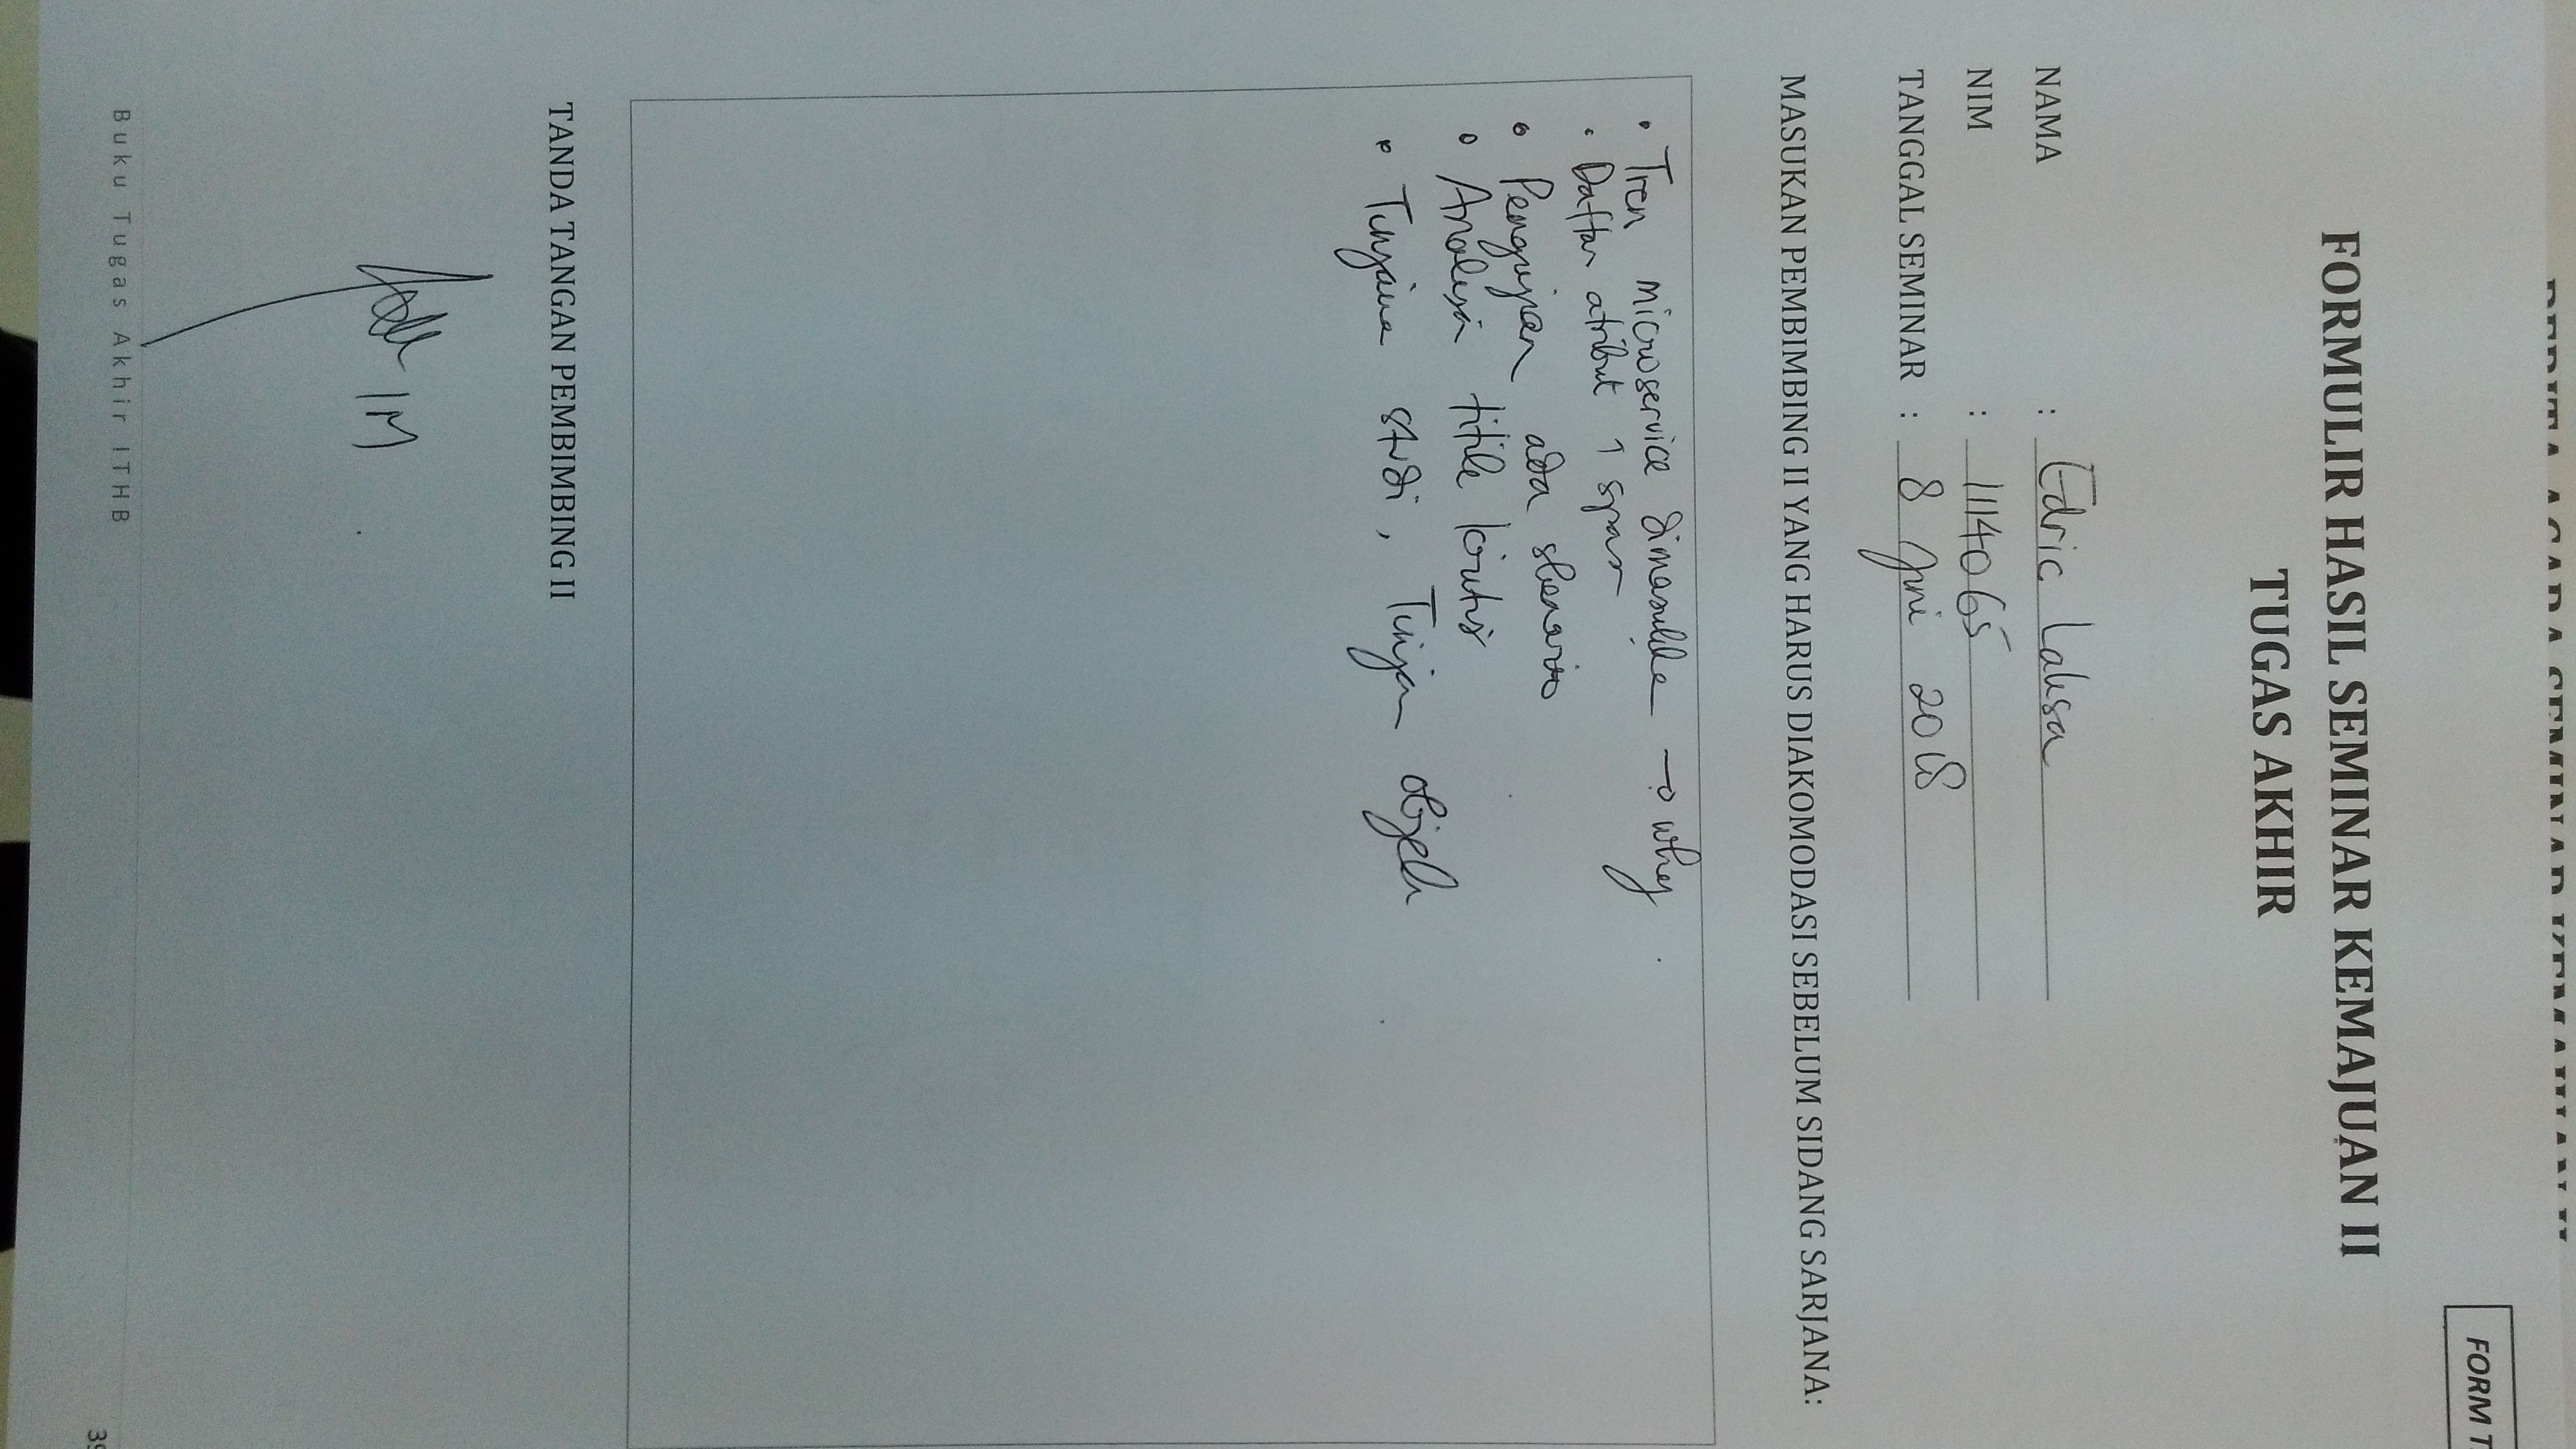 BERITA ACARA SEMINAR KEMAJUAN II
FORM T
FORMULIR HASIL SEMINAR KEMAJUAN II
TUGAS AKHIR
NAMA : Edric Laksa
NIM : 1114065
TANGGAL SEMINAR : 8 Juni 2018
MASUKAN PEMBIMBING II YANG HARUS DIAKOMODASI SEBELUM SIDANG SARJANA:
• Tren microservice dimasukka → why
• Daftar atribut 1 span
• Pengujian ada skenario
• Analisa titik kritis
• Tinjaua studi, Tinjan objek
TANDA TANGAN PEMBIMBING II
IM
Buku Tugas Akhir ITHB
39